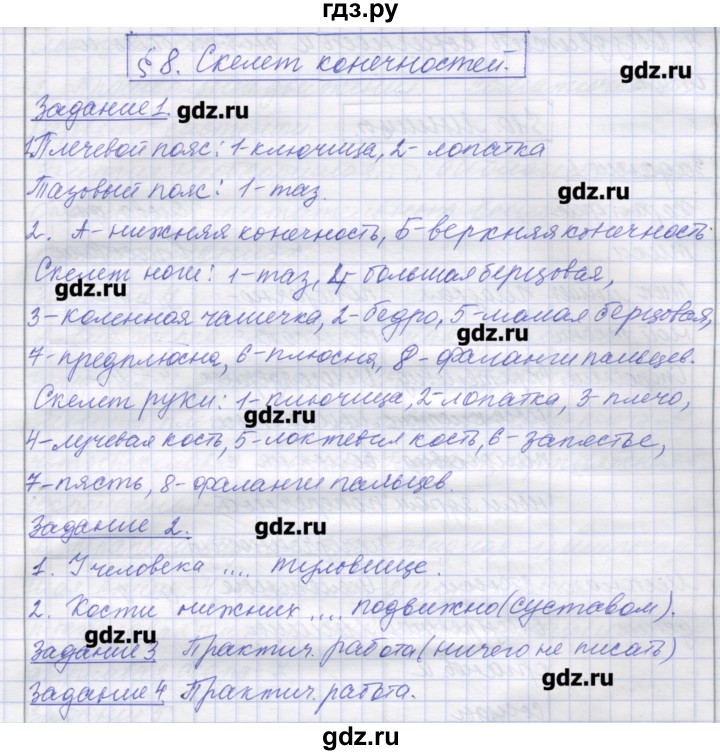 гдз.ру
§ 8. Скелет конечностей.
Задание 1 gdz.ru gdz.ru
1. Плечевой пояс: 1-ключица, 2- лопатка
Тазовый пояс: 1-таз. gdz.ru
2. А-нижняя конечность, Б-верхняя конечность.
Скелет ноги: 1-таз, 4-большая берцовая,
gdz.ru
3-коленная чашечка, 2-бедро, 5-малая берцовая,
gdz.ru
7-предплюсна, 6-плюсна, 8-фаланги пальцев.
Скелет руки: 1-ключица, 2-лопатка, 3-плечо,
gdz.ru
4-лучевая кость, 5-локтевая кость, 6-запястье,
7-пясть, 8-фаланги пальцев.
Задание 2. gdz.ru
1. У человека .... туловище.
2. Кости нижних .... подвижно (суставом).
gdz.ru
Задание 3 Практич. работа (ничего не писать)
gdz.ru
Задание 4 Практич. работа.
gdz.ru